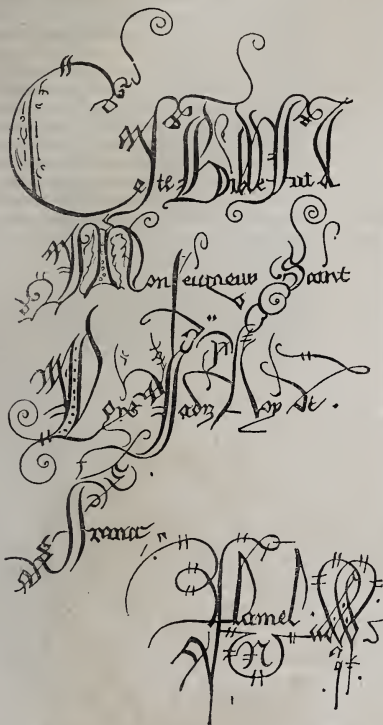 Ceste Bible fut a
Monseigneur Saint
Loys Jadiz Roy
France
Flamel